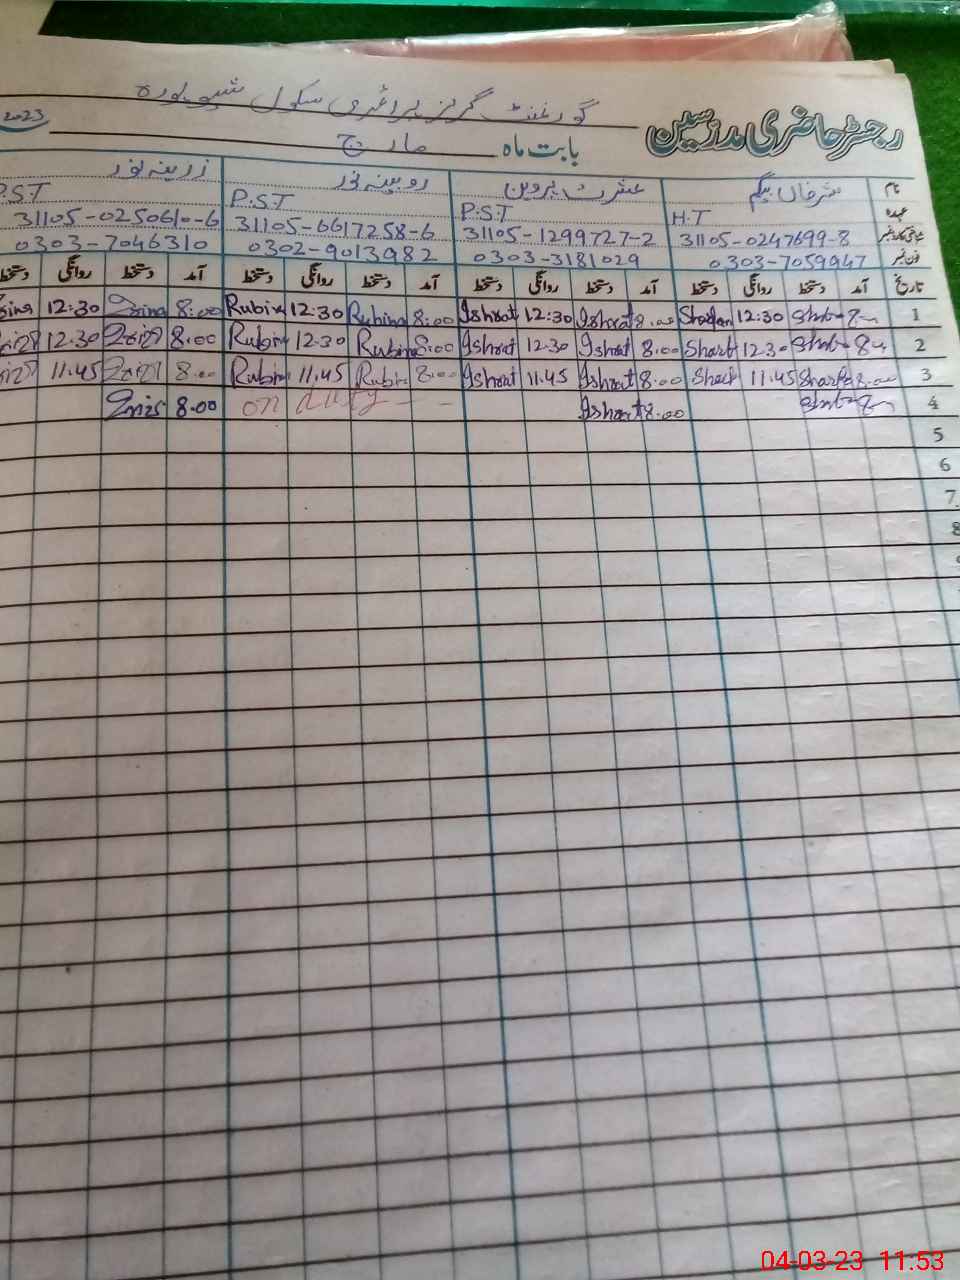 رجسٹر حاضری مدرسین گورنمنٹ گرلز پرائمری سکول
بابت ماہ مارچ 2023
نام شرفاں بیگم عشرت پروین روبینہ نور زرینہ نور
عہدہ H.T P.S.T P.S.T P.S.T
شناختی کارڈ نمبر 31105-0247699-8 31105-1299727-2 31105-6617258-6 31105-0250610-6
فون نمبر 0303-7059947 0303-3181029 0302-9013982 0303-7046310
تاریخ آمد دستخط روانگی دستخط آمد دستخط روانگی دستخط آمد دستخط روانگی دستخط آمد دستخط روانگی دستخط
1 12:30 8:00 Ishrat 12:30 Ishrat 8:00 Rubina 12:30 Rubina 8:00 12:30
2 12:30 8:00 Ishrat 12:30 Ishrat 8:00 Rubina 12:30 8:00 12:30
3 8:00 11:45 8:00 Ishrat 11:45 Ishrat 8:00 11:45 8:00 11:45
4 8:00 Ishrat on duty 8:00
5
6
7
8
04-03-23 11:53